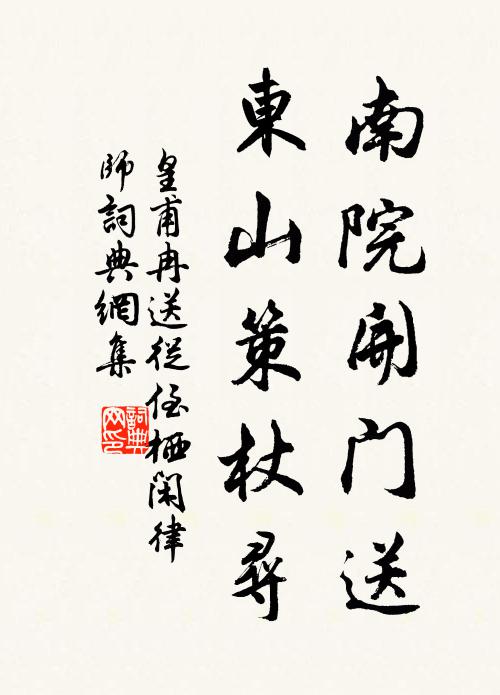 南院開門送
東山策杖尋
皇甫冉送從侄栖閑律
師詞典網集
詞典
网印